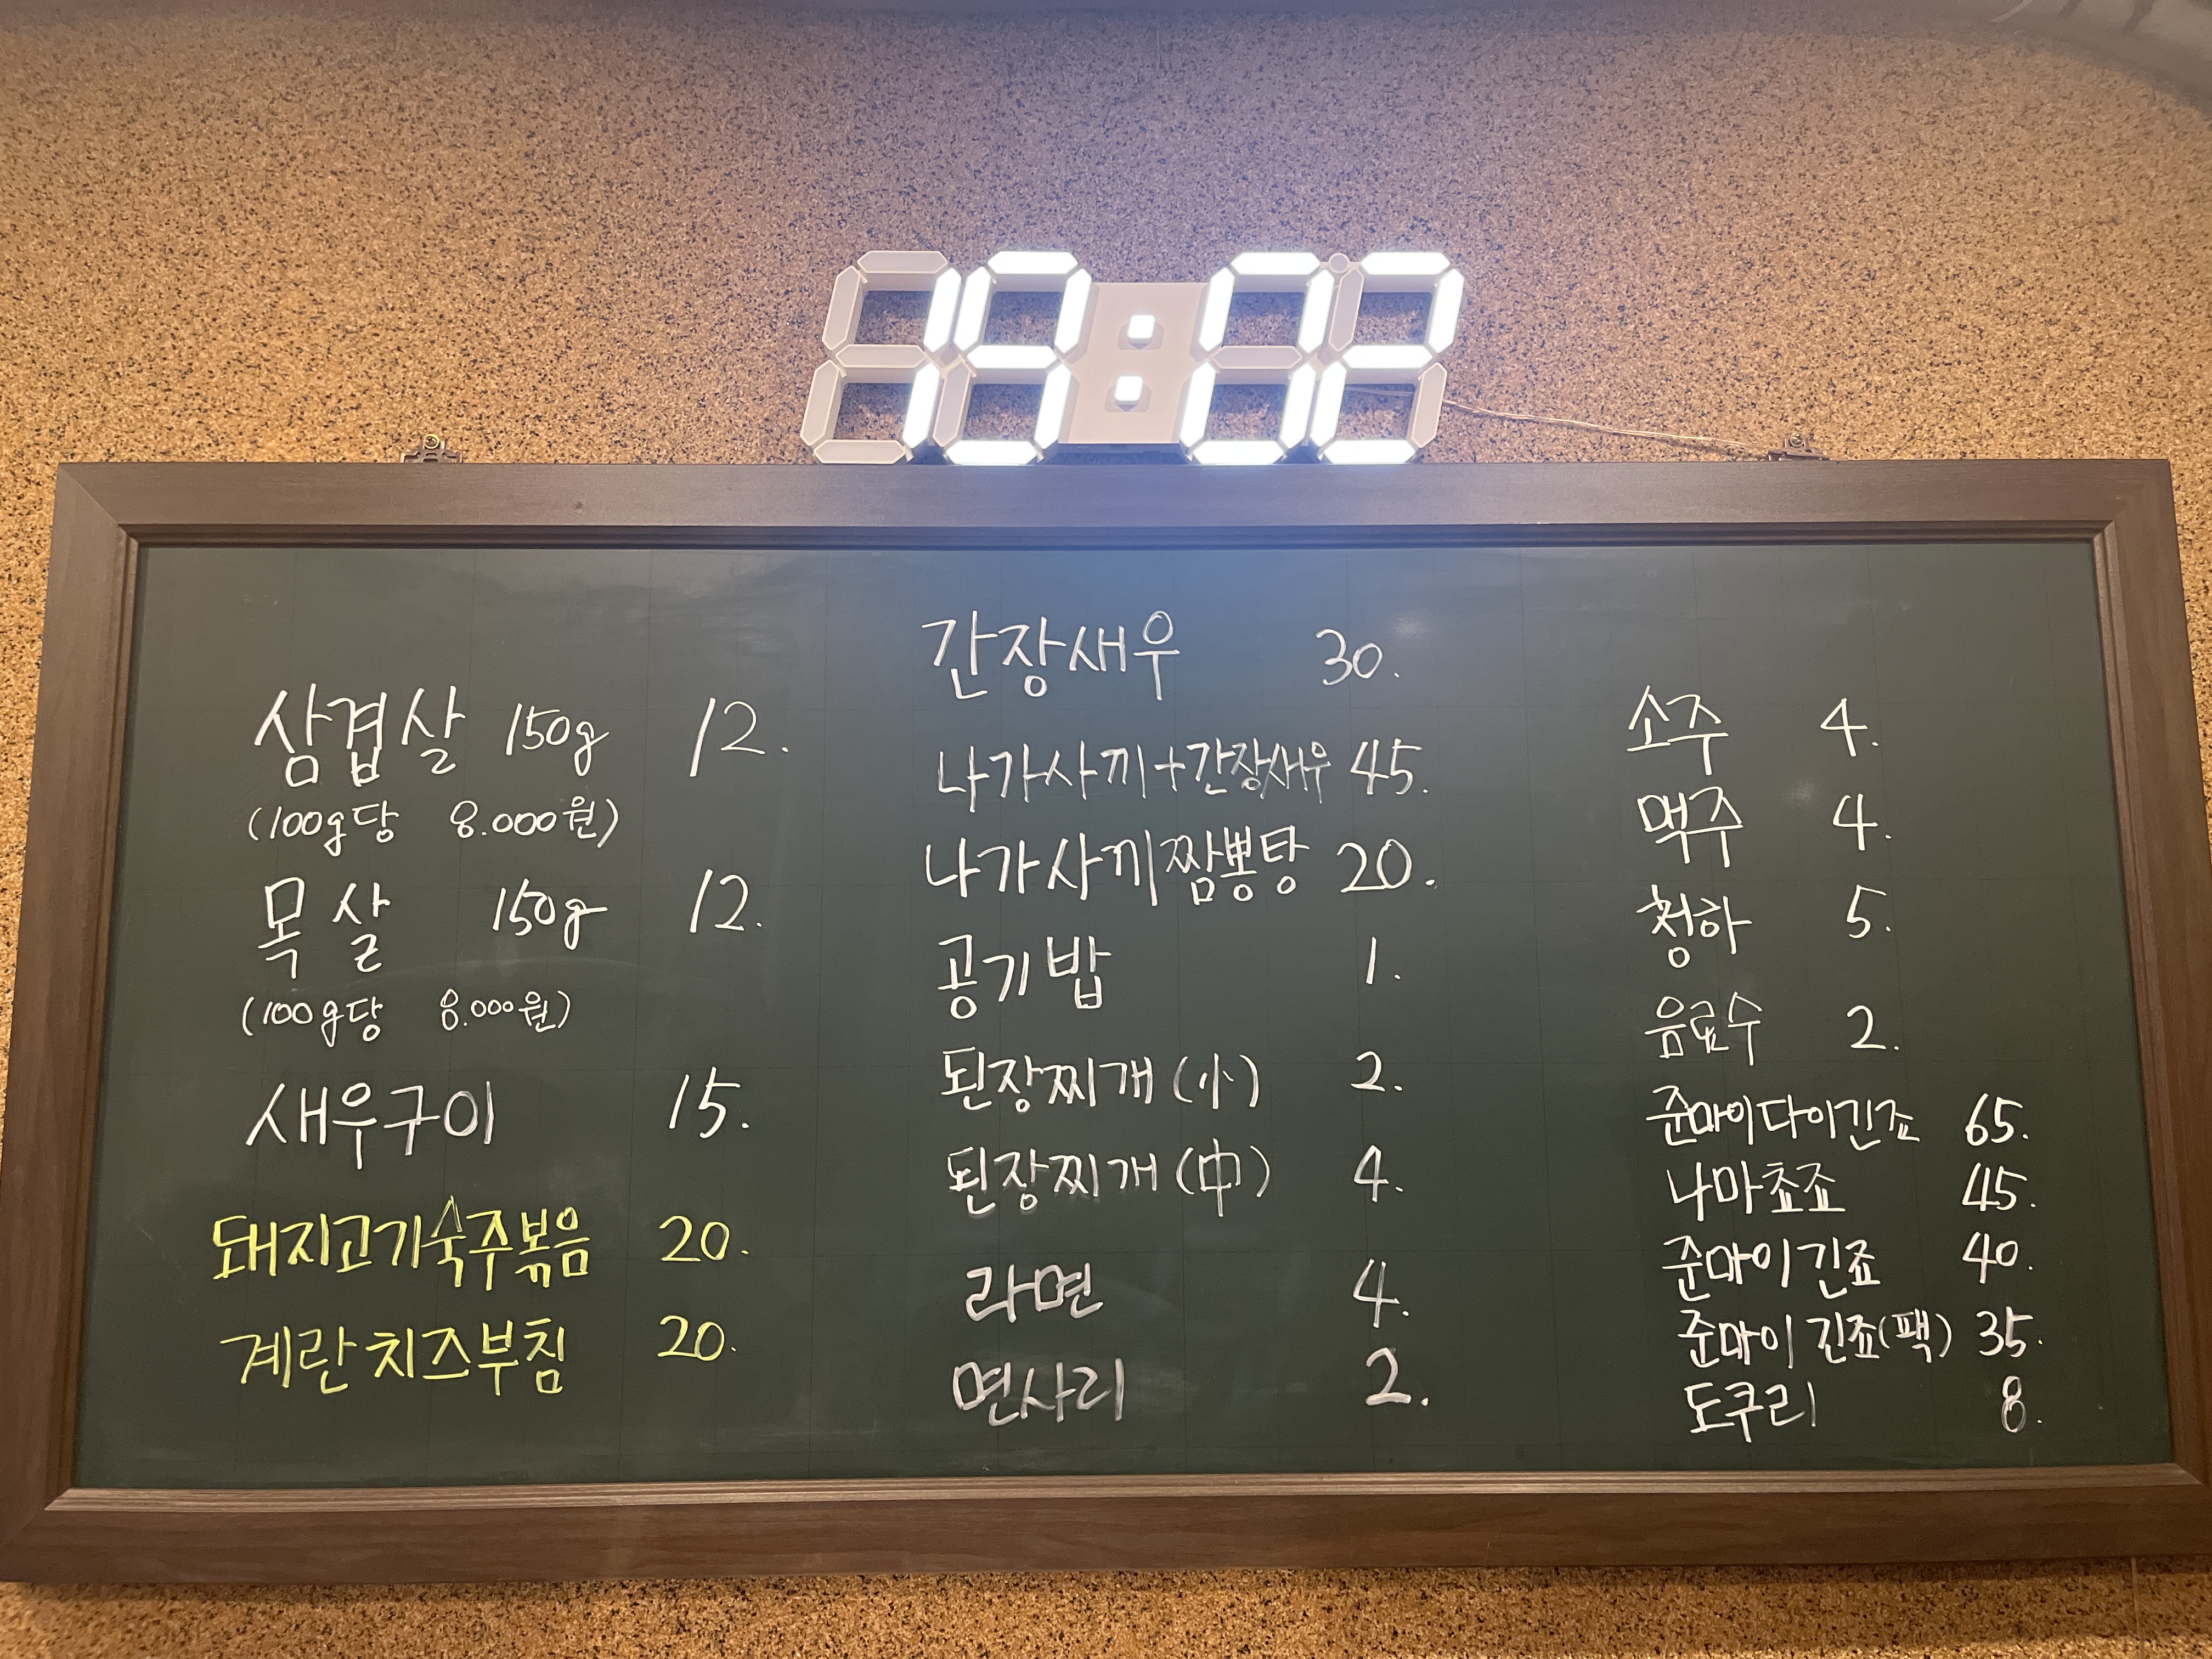 19:02
삼겹살 150g 12.
(100g당 8.000원)
목살 150g 12.
(100g당 8.000원)
새우구이 15.
돼지고기숙주볶음 20.
계란치즈부침 20.
간장새우 30.
나가사끼+간장새우 45.
나가사끼짬뽕탕 20.
공기밥 1.
된장찌개(小) 2.
된장찌개(中) 4.
라면 4.
면사리 2.
소주 4.
맥주 4.
청하 5.
음료수 2.
준마이다이긴죠 65.
나마쵸죠 45.
준마이긴죠 40.
준마이 긴죠(팩) 35.
도쿠리 8.